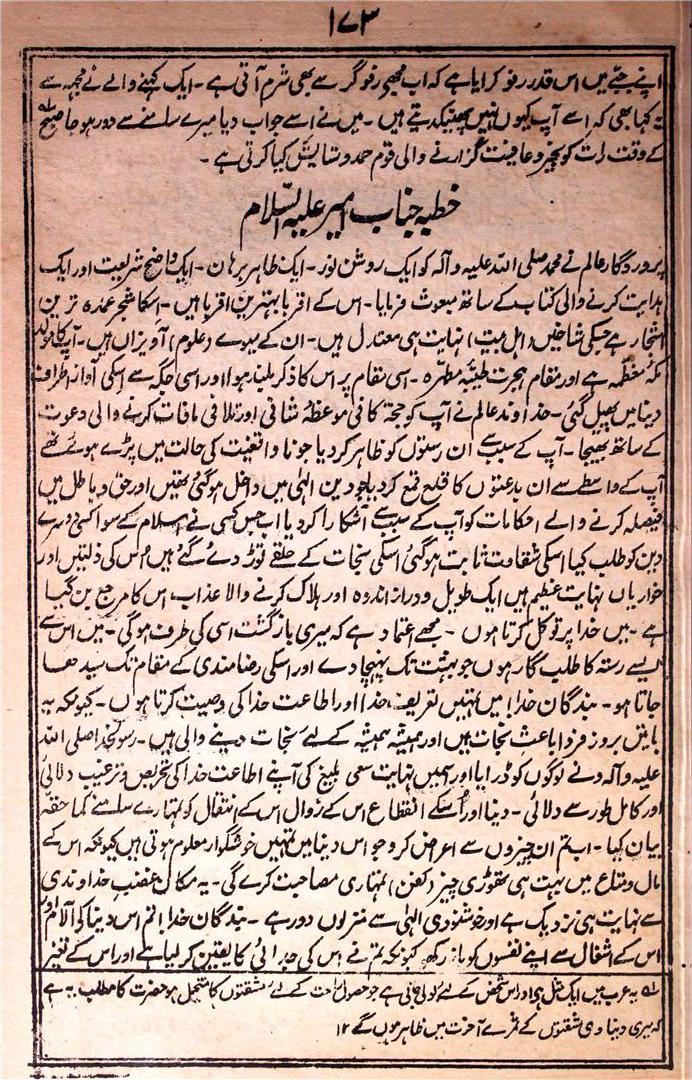 ۱۷۳
اپنے جبّے میں اس قدر رفو کرایا ہے کہ اب مجھے رفوگر سے بھی شرم آتی ہے۔ ایک کہنے والے نے مجھ سے
یہ کہا بھی کہ اسے آپ کیوں نہیں پھینکدیتے ہیں۔ میں نے اسے جواب دیا میرے سامنے سے دور ہو جا صبح
کے وقت رات کو بخیر و عافیت گزارنے والی قوم حمد و ستایش کیا کرتی ہے۔
خطبہ جناب امیر علیہ السّلام
پروردگار عالم نے محمد صلی اللہ علیہ وآلہ کو ایک روشن نور۔ ایک ظاہر برہان۔ ایک واضح شریعت اور ایک
ہدایت کرنے والی کتاب کے ساتھ مبعوث فرمایا۔ اس کے اقربا بہترین اقربا ہیں۔ اسکا شجر عمدہ ترین
اشجار ہے جسکی شاخیں (اہل بیت) نہایت ہی معتدل ہیں۔ ان کے میوے (علوم) آویزاں ہیں۔ آپکا مولد
مکہ معظمہ ہے اور مقام ہجرت طیبہ مطہرہ۔ اسی مقام پر اس کا ذکر بلند ہوا اور اسی جگہ سے اسکی آواز اطراف
دنیا میں پھیل گئی۔ خداوند عالم نے آپ کو حجۃ کافی موعظہ شافی اور تلافی مافات کرنے والی دعوت
کے ساتھ بھیجا۔ آپ کے سبب سے ان رستوں کو ظاہر کر دیا جو ناواقفیت کی حالت میں پڑے ہوئے تھے
آپ کے واسطے سے ان بدعتوں کا قلع قمع کر دیا جو دین الٰہی میں داخل ہو گئی تھیں اور حق و باطل میں
فیصلہ کرنے والے احکامات کو آپ کے سبب سے آشکارا کر دیا اب جس کسی نے اسلام کے سوا کسی دوسرے
دین کو طلب کیا اسکی شقاوت ثابت ہو گئی اسکی نجات کے حلقے توڑ دئے گئے ہیں اس کی ذلتیں اور
خواریاں نہایت عظیم ہیں ایک طویل و دراز اندوہ اور ہلاک کرنے والا عذاب اس کا مرجع بن گیا
ہے۔ میں خدا پر توکل کرتا ہوں۔ مجھے اعتماد ہے کہ میری بازگشت اسی کی طرف ہوگی۔ میں اس سے
ایسے رستہ کا طلب گار ہوں جو بہشت تک پہنچا دے اور اسکی رضامندی کے مقام تک سیدھا
جاتا ہو۔ بندگان خدا! میں تمہیں تعریف خدا اور اطاعت خدا کی وصیت کرتا ہوں۔ کیونکہ یہ
باتیں بروز فردا باعث نجات ہیں اور ہمیشہ ہمیشہ کے لئے نجات دینے والی ہیں۔ رسولخدا صلی اللہ
علیہ وآلہ نے لوگوں کو ڈرایا اور ہمیں نہایت سعی بلیغ کی آپنے اطاعت خدا کی تحریص و ترغیب دلائی
اور کامل طور سے دلائی۔ دنیا اور اُسکے انقطاع اس کے زوال اس کے انتقال کو تمہارے سامنے کما حقہ
بیان کیا۔ اب تم ان چیزوں سے اعراض کرو جو اس دنیا میں تمہیں خوشگوار معلوم ہوتی ہیں کیونکہ اس کے
مال و متاع میں بہت ہی تھوڑی چیز (کفن) تمہاری مصاحبت کرے گی۔ یہ مکان غضب خداوندی
سے نہایت ہی نزدیک ہے اور خوشنودی الٰہی سے منزلوں دور ہے۔ بندگان خدا! تم اس دنیا کی آلام اور
اس کے اشغال سے اپنے نفسوں کو باز رکھو کیونکہ تم نے اس کی جدائی کا یقین کر لیا ہے اور اس کے تغیر
لہ یہ عرب میں ایک مثل ہے اور اس شخص کے لئے بولی جاتی ہے جو حصول راحت کے لئے مشقتوں کا متحمل ہو حضرت کا مطلب یہ ہے
کہ میری دنیاوی مشقتوں کے ثمرے آخرت میں ظاہر ہوں گے ۱۲